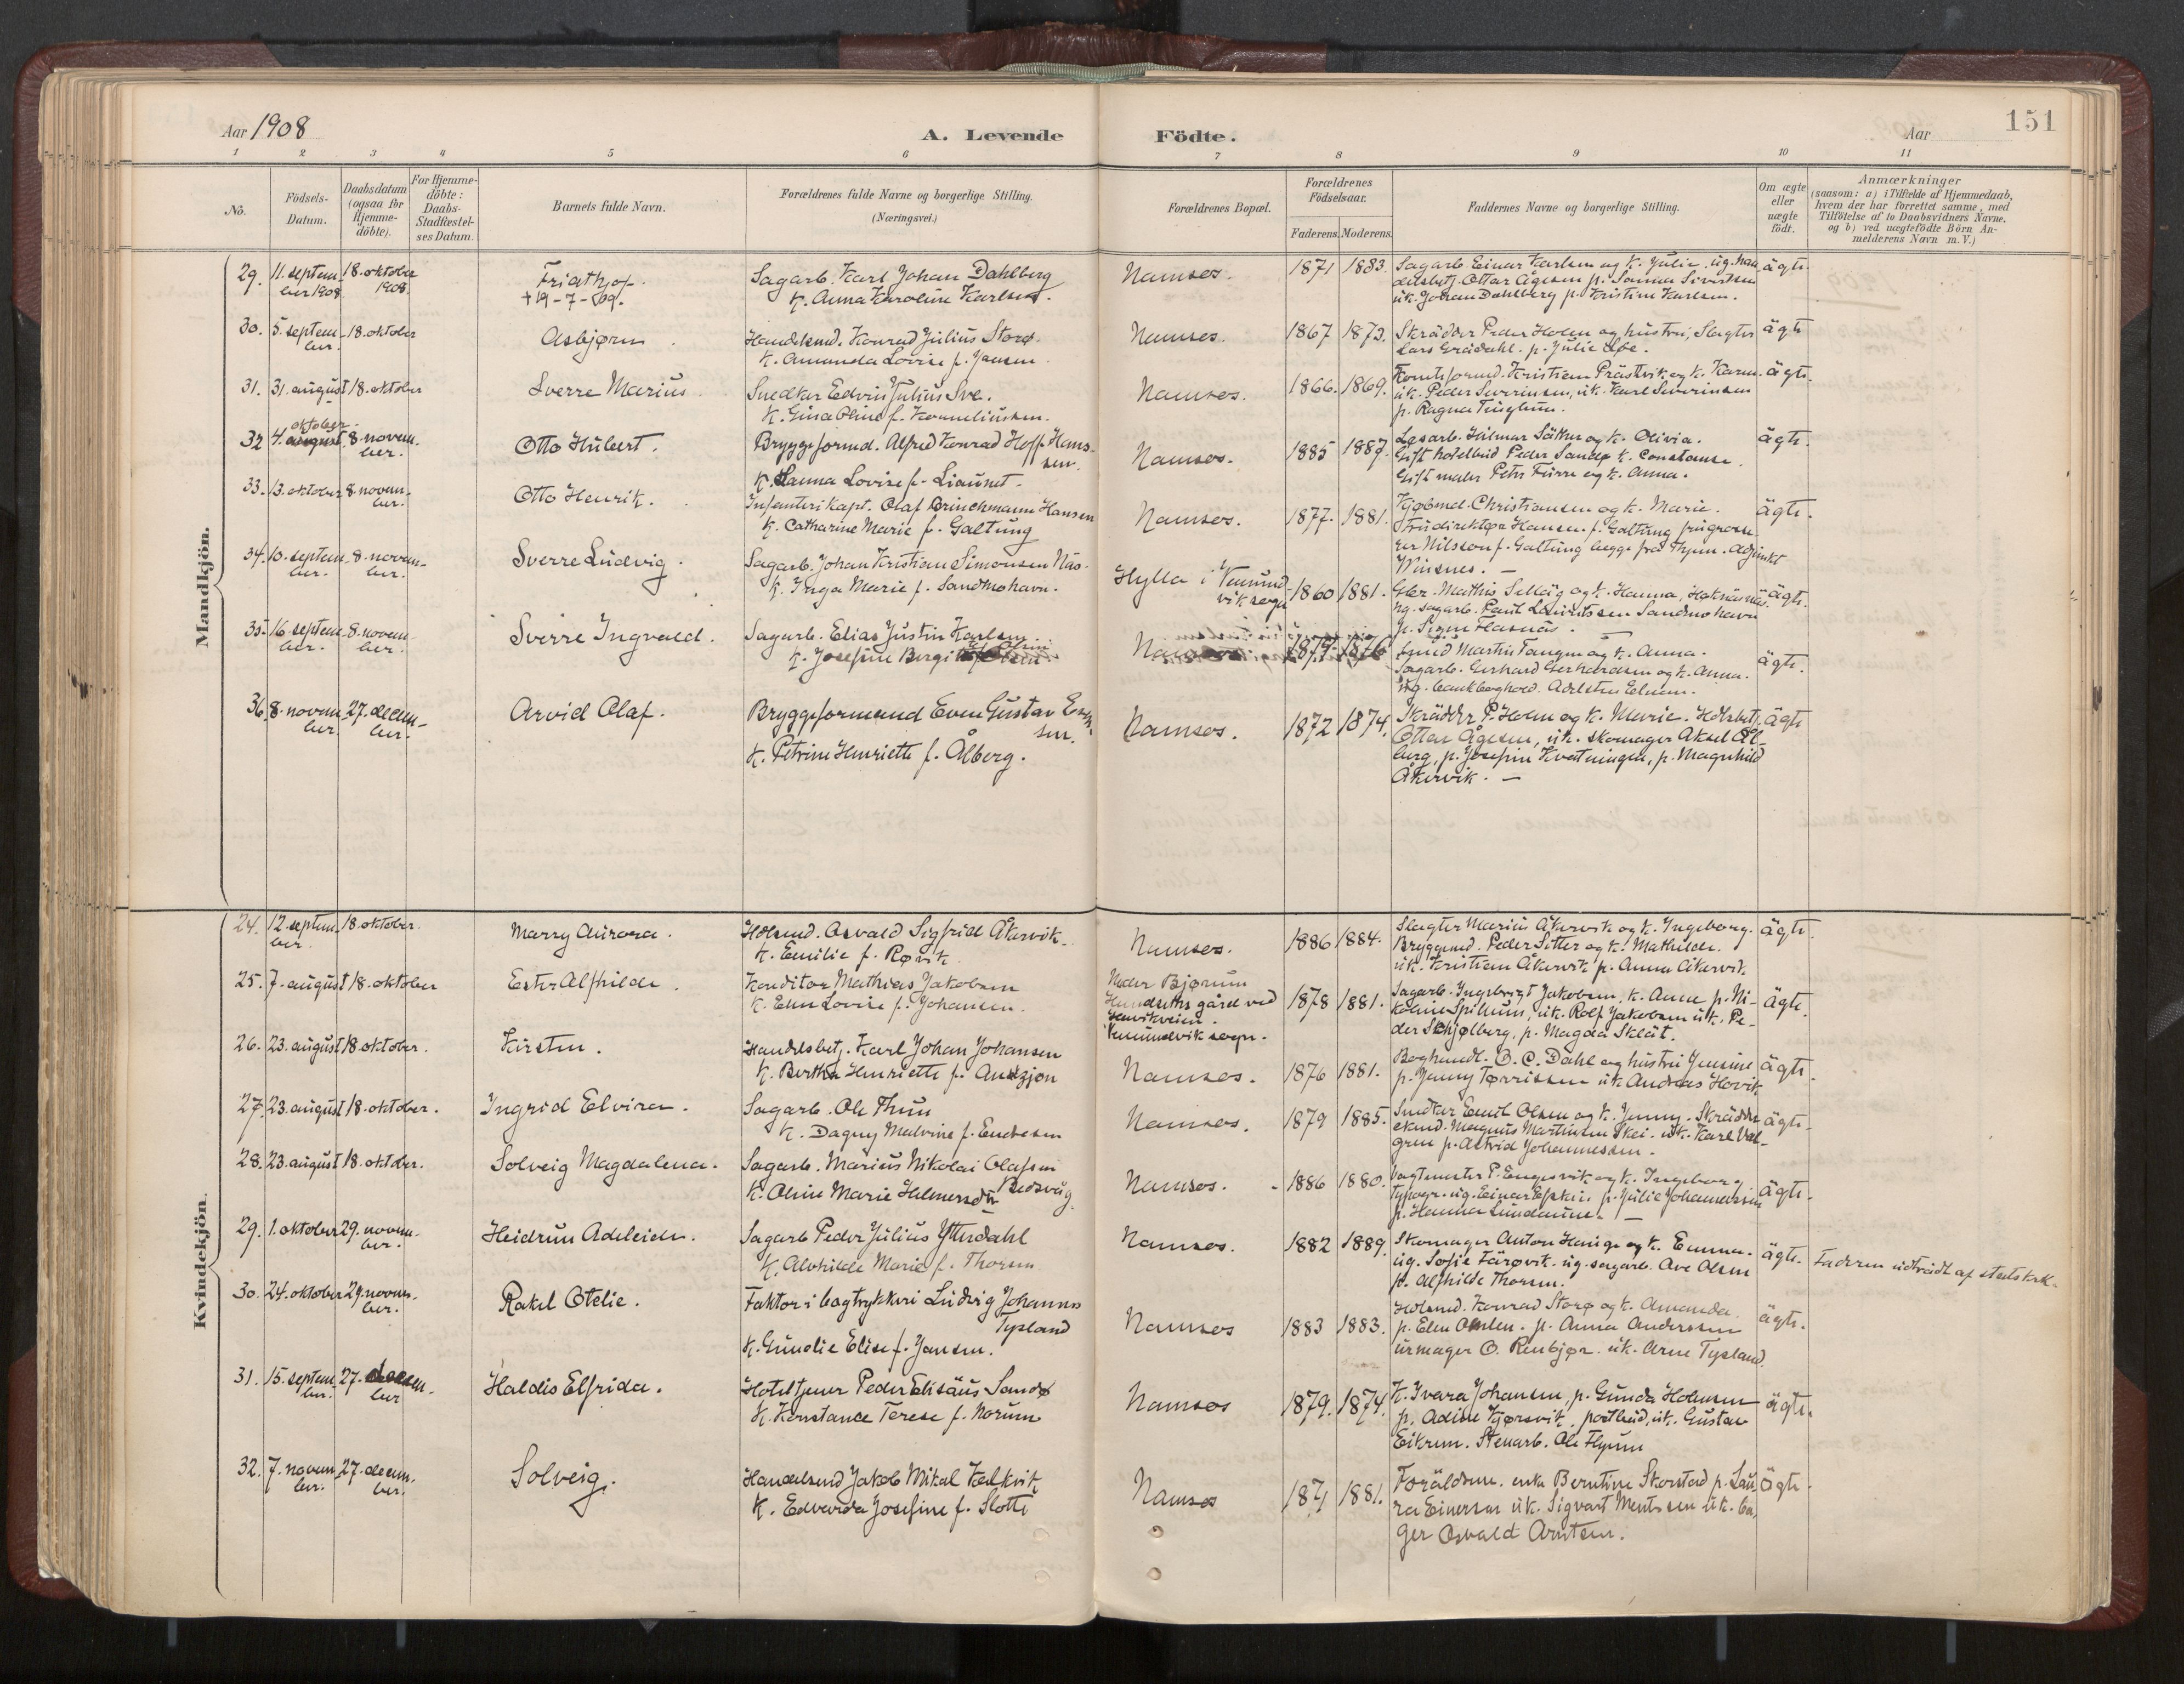 Aar 1908
A. Levende Födte.
Aar
151
1 2 3 4 5 6 7 8 9 10 11
No.
Födsels-
Datum.
Daabsdatum
(ogsaa for
Hjemme-
döbte).
For Hjemme-
döbte:
Daabs-
Stadfæstel-
ses Datum.
Barnets fulde Navn.
Forældrenes fulde Navne og borgerlige Stilling.
(Næringsvei.)
Forældrenes Bopæl.
Forældrenes
Födselsaar.
Faderens. Moderens.
Faddernes Navne og borgerlige Stilling.
Om ægte
eller
uægte
født.
Anmærkninger
(saasom: a) i Tilfælde af Hjemmedaab,
hvem der har forrettet samme, med
Tilföielse af to Daabsvidners Navne,
og b) ved uægtefödte Börn An-
melderens Navn m. V.)
Mandkjön.
29. 11. septem- 18. oktober
ber 1908. 1908.
Friathjof.
+ 19-7-09.
Sagarb. Karl Johan Dahlberg
K. Anna Karoline Karlsen.
Namsos. 1871 1883.
Sagarb. Einar Karlsen og K. Julie. ug. han-
delsbetj. Ottar Ågesen p. Sivertsen
uk. Johan Dahlberg p. Kristine Karlsen.
ägte.
30. 5. septem- 18. oktober
ber.
Asbjørn.
Handelsmd. Konrad Julius Storø.
K. Amanda Lovise f. Jansen.
Namsos. 1867 1872.
Skrädder Peder Holm og hustru, Slagter
Lars Grädahl. p. Julie
ägte
31. 31. august 18. oktober
Sverre Marius.
Snedker Edvin Julius Sve.
K. Gina Oline f. Korneliussen.
Namsos. 1866. 1869.
Kristian Prästvik og K. Karen.
uk. Peder Severinsen, uk. Karl Severinsen
p. Ragna
ägte.
oktober.
32 4. august. 8. novem-
ber.
Otto Hubert.
Bryggeformd. Alfred Konrad Hoff Hans-
sen.
K. Lovise f. Liaunet.
Namsos. 1885 1887.
Løsarb. Hilmar Säther og K. Olivia.
Gift hotelbud Peder Sandø K. Constanse.
Gift maler Petter Furre og K. Anna.
ägte.
33. 13. oktober 8. novem-
ber.
Otto Henrik.
Infanteri Kapt. Olaf Brinchmann Hansen
K. Catharine Marie f. Galtung
Namsos. 1877. 1881.
Kjøbmd. Christiansen og K. Marie.
Frudirektør Hansen f. Galtung frugrosse-
rer Nilsson f. Galtung begge fra Thjem. Adjunkt
Winsnes. —
ägte.
34. 10. septem- 8. novem-
ber. ber.
Sverre Ludvig.
Sagarb. Johan Kristian Simonsen Näs.
K. Inga Marie f. Sandmohavn.
Hylla i Vemund-
vik sogn
1860 1881.
Gbr. Mathis Selläg og K. Hanna,
ug. sagarb. Paul Lauritssen Sandmohavn
p. Signe Flasnäs. —
ägte.
35. 16. septem- 8. novem-
ber. ber.
Sverre Ingvald.
Sagarb. Elias Justin Karlsen.
K. Josefine Bergitte
Namsos 1879. 1876
Smed Martin Tangen og K. Anna.
Sagarb. Gerhard Gerhardsen og K. Anna.
ug. bankboghold. Adelsten Edmun.
ägte.
36. 8. novem- 27. decem-
ber. ber.
Arvid Olaf.
Bryggeformand Even Gustav Even-
sen.
K. Petrine Henriette f. Ålberg.
Namsos. 1872 1874.
Skrädder P. Holm og K. Marie. Hdlsbetj.
Ottar Ågesen, uk. skomager Aksel Ål-
berg, p. Josefine Kvatningen, p. Magnhild
Åkervik. —
ägte
Kvindekjön.
24. 12. septem- 18. oktober.
ber.
Marry Aurora.
Hdlsmd. Osvald Sigfrid Åkervik.
K. Emilie f. Røvik.
Namsos. 1886 1884.
Slagter Marius Åkervik og K. Ingeborg.
Bryggemd. Peder Sitter og K. Mathilde.
uk. Kristian Åkervik p. Anna Åkervik
ägte.
25. 7. august 18. oktober
Ester Alfhilde.
Konditor Mathias Jakobsen
K. Elen Lovise f. Johansen.
Neder Bjørum
gård ved
Vemundvik sogn.
1878 1881.
Sagarb. Ingebrigt Jakobsen, K. Anne p. Ni-
koline Spillum, uk. Rolf Jakobsen uk. Pe-
der Schjølberg, p. Magda Sklät.
ägte.
26. 23. august 18. oktober.
Kirsten.
Handelsbetj. Karl Johan Johansen
K. Bertha Henriette f. Andzjon
Namsos. 1876 1881.
Boghandl. O. C. Dahl og hustru Jensine
p. Jenny Tørrissen uk Andreas Hovik
ägte.
27. 23. august 18. oktober.
Ingrid Elvira.
Sagarb. Ole Thun
K. Dagny Malvine f. Endresen
Namsos. 1879 1885.
Snedker Emil Olsen og K. Jenny. Skrädder
svend. Magnus Martinsen Skei. uk. Karl Val-
gren p. Astrid Johannessen.
ägte.
28. 23. august 18. oktober.
Solveig Magdalena.
Sagarb. Marius Nikolai Olafsen
Redsvåg.
K. Oline Marie Helmersdtr
Namsos. 1886 1880.
Vagtmester P. Engesvik og K. Ingeborg
typogr. ug. Einar p. Julie Johannessen
p. Hanna —
ägte.
29. 1. oktober 29. novem-
ber.
Heidrun Adeleide.
Sagarb Peder Julius Ytterdahl
K. Alvhilde Marie f. Thorsen
Namsos. 1882 1889.
Skomager Anton Hauge og K. Emma.
ug. Sofie Färøvik. ug. sagarb. Ove Olsen
p. Alfhilde Thorsen.
ägte.
Faderen udtraadt af statskirk.
30. 24. oktober 29. novem-
ber.
Rakel Otelie.
Faktor i bogtrykkeri Ludvig Johannes
Tysland
K. Gunelie Elise f. Jansen.
Namsos 1883 1883.
Hdlsmd. Konrad Storø og K. Amanda.
p. Elen p. Anna Anderssen
urmager O. Renbjør. uk. Arne Tysland.
ägte.
31. 15. septem- 27. decem-
ber. ber
Haldis Elfrida.
Hoteltjener Peder Elisäus Sandø
K. Konstance Terese f. Norum
Namsos 1879. 1874.
K. Ivara Johansen, p. Gunda Holmsen
p. Adine Kjørsvik, postbud, uk. Gustav
Eikrem. Stenarb. Ole Flynn
ägte.
32. 7. novem- 27. decem-
ber. ber.
Solveig.
Handelsmd Jakob Mikal Kalkvik
K. Edvarda Josefine f. Slotte
Namsos 1871 1881.
Foräldrene. enke Berntine Skorstad p. Lau-
ra Einersen uk. Sigvart Mentssen uk. ba-
ger Osvald Arntsen.
ägte.